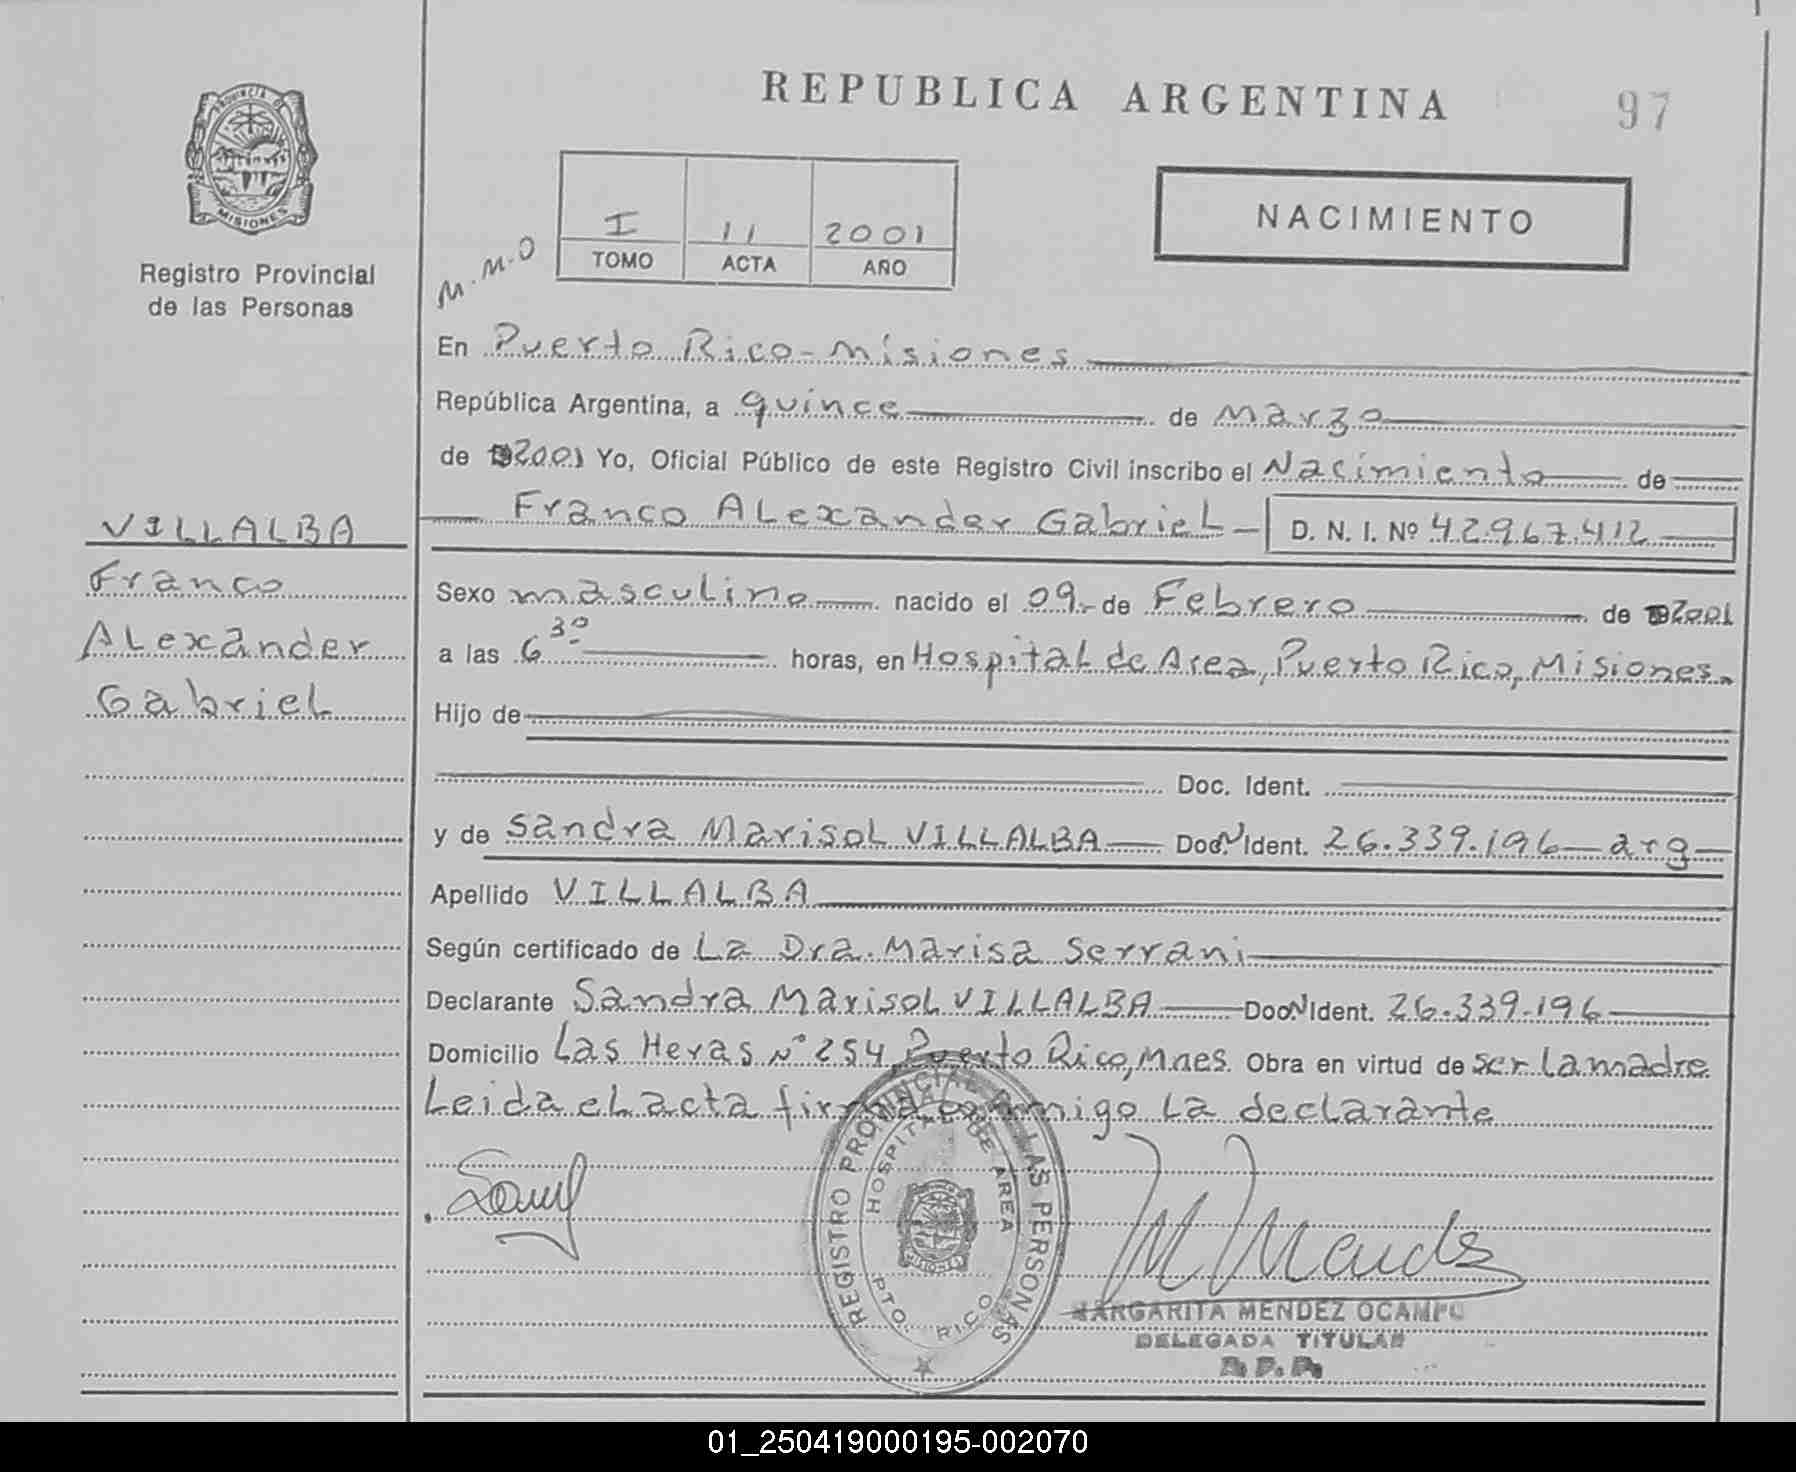 REPUBLICA ARGENTINA
97
PROVINCIA DE
MISIONES
Registro Provincial
de las Personas
I 11 2001
TOMO ACTA AÑO
NACIMIENTO
M.M.O
En Puerto Rico - Misiones
República Argentina, a quince de Marzo
de 2001 Yo, Oficial Público de este Registro Civil inscribo el Nacimiento de
Franco Alexander Gabriel D. N. I. Nº 42.967.412
VILLALBA
Franco
Alexander
Gabriel
Sexo masculino nacido el 09 de Febrero de 2001
a las 6 30 horas, en Hospital de Area, Puerto Rico, Misiones.
Hijo de
Doc. Ident.
y de Sandra Marisol VILLALBA Doc. N Ident. 26.339.196 arg
Apellido VILLALBA
Según certificado de La Dra. Marisa Serrani
Declarante Sandra Marisol VILLALBA Doc. N Ident. 26.339.196
Domicilio Las Heras Nº 254, Puerto Rico, Mnes. Obra en virtud de ser la madre
Leida el acta firma conmigo la declarante
REGISTRO PROVINCIAL DE LAS PERSONAS
HOSPITAL DE AREA
MISIONES
PTO. RICO
MARGARITA MENDEZ OCAMPO
DELEGADA TITULAR
01_250419000195-002070